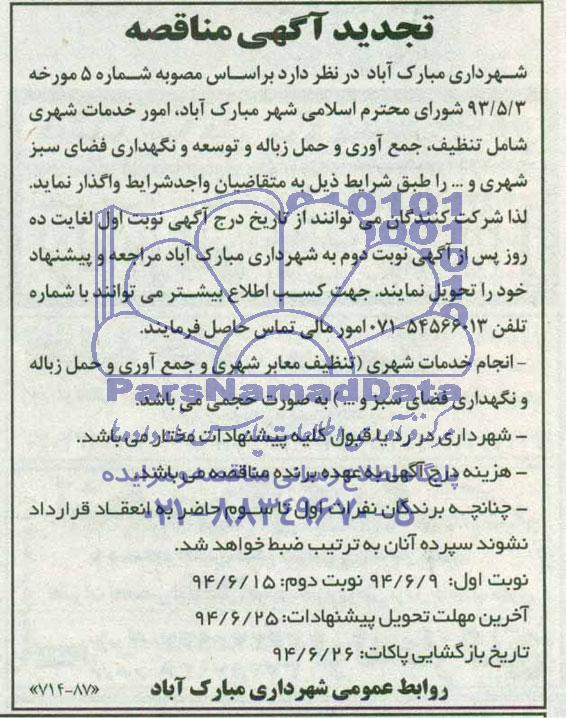 تجدید آگهی مناقصه
شهرداری مبارک آباد در نظر دارد براساس مصوبه شماره ۵ مورخه
۹۳/۵/۳ شورای محترم اسلامی شهر مبارک آباد، امور خدمات شهری
شامل تنظیف، جمع آوری و حمل زباله و توسعه و نگهداری فضای سبز
شهری و ... را طبق شرایط ذیل به متقاضیان واجدشرایط واگذار نماید.
لذا شرکت کنندگان می توانند از تاریخ درج آگهی نوبت اول لغایت ده
روز پس از آگهی نوبت دوم به شهرداری مبارک آباد مراجعه و پیشنهاد
خود را تحویل نمایند. جهت کسب اطلاع بیشتر می توانند با شماره
تلفن ۵۴۵۶۶۰۱۳-۰۷۱ امور مالی تماس حاصل فرمایند.
- انجام خدمات شهری (تنظیف معابر شهری و جمع آوری و حمل زباله
ParsNamadData
و نگهداری فضای سبز و ...) به صورت حجمی می باشد.
- شهرداری در رد یا قبول کلیه پیشنهادات مختار می باشد.
- هزینه درج آگهی به عهده برنده مناقصه می باشد.
۰۲۱-۸۸۳۴۹۶۷۰-۵
- چنانچه برندگان نفرات اول تا سوم حاضر به انعقاد قرارداد
نشوند سپرده آنان به ترتیب ضبط خواهد شد.
نوبت اول: ۹۴/۶/۹ نوبت دوم: ۹۴/۶/۱۵
آخرین مهلت تحویل پیشنهادات: ۹۴/۶/۲۵
تاریخ بازگشایی پاکات: ۹۴/۶/۲۶
روابط عمومی شهرداری مبارک آباد
«۷۱۴-۸۷»